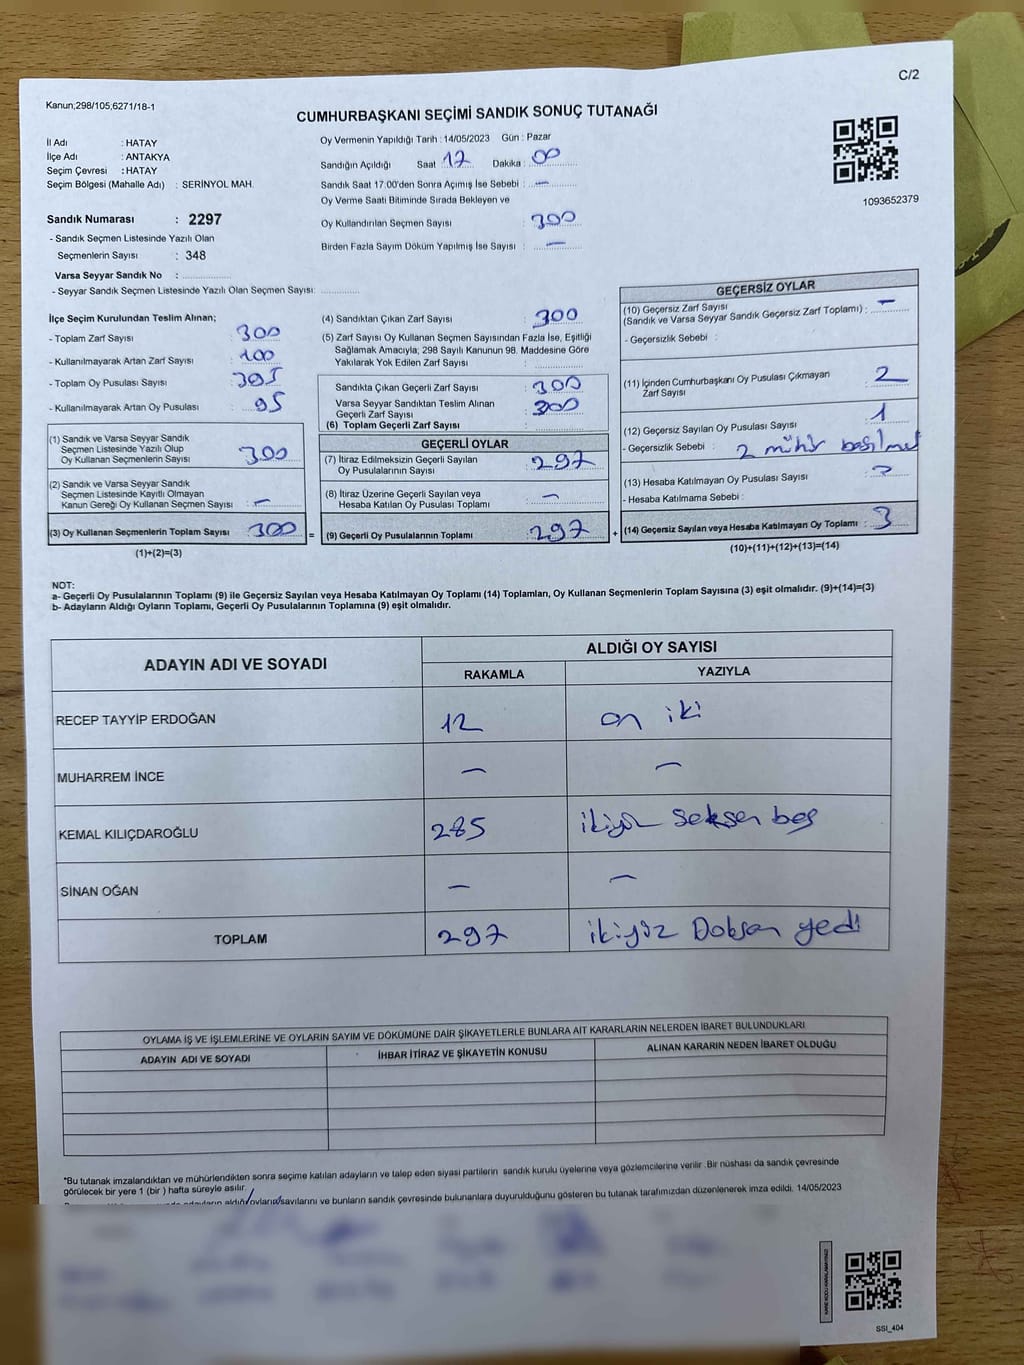 C/2
Kanun;298/105,6271/18-1
CUMHURBAŞKANI SEÇİMİ SANDIK SONUÇ TUTANAĞI
İl Adı : HATAY
İlçe Adı : ANTAKYA
Seçim Çevresi : HATAY
Seçim Bölgesi (Mahalle Adı) : SERİNYOL MAH.
Sandık Numarası : 2297
- Sandık Seçmen Listesinde Yazılı Olan
Seçmenlerin Sayısı : 348
Varsa Seyyar Sandık No :
- Seyyar Sandık Seçmen Listesinde Yazılı Olan Seçmen Sayısı:
Oy Vermenin Yapıldığı Tarih : 14/05/2023 Gün : Pazar
Sandığın Açıldığı Saat 17 Dakika : 00
Sandık Saat 17.00'den Sonra Açımış İse Sebebi : —
Oy Verme Saati Bitiminde Sırada Bekleyen ve
Oy Kullandırılan Seçmen Sayısı : 300
Birden Fazla Sayım Döküm Yapılmış İse Sayısı : —
1093652379
İlçe Seçim Kurulundan Teslim Alınan;
- Toplam Zarf Sayısı : 300
- Kullanılmayarak Artan Zarf Sayısı : 100
- Toplam Oy Pusulası Sayısı : 395
- Kullanılmayarak Artan Oy Pusulası : 95
(1) Sandık ve Varsa Seyyar Sandık
Seçmen Listesinde Yazılı Olup
Oy Kullanan Seçmenlerin Sayısı : 300
(2) Sandık ve Varsa Seyyar Sandık
Seçmen Listesinde Kayıtlı Olmayan
Kanun Gereği Oy Kullanan Seçmen Sayısı : —
(3) Oy Kullanan Seçmenlerin Toplam Sayısı : 300
(1)+(2)=(3)
(4) Sandıktan Çıkan Zarf Sayısı : 300
(5) Zarf Sayısı Oy Kullanan Seçmen Sayısından Fazla İse, Eşitliği
Sağlamak Amacıyla; 298 Sayılı Kanunun 98. Maddesine Göre
Yakılarak Yok Edilen Zarf Sayısı :
Sandıkta Çıkan Geçerli Zarf Sayısı : 300
Varsa Seyyar Sandıktan Teslim Alınan
Geçerli Zarf Sayısı : 300
(6) Toplam Geçerli Zarf Sayısı :
=
GEÇERLİ OYLAR
(7) İtiraz Edilmeksizin Geçerli Sayılan
Oy Pusulalarının Sayısı : 297
(8) İtiraz Üzerine Geçerli Sayılan veya
Hesaba Katılan Oy Pusulası Toplamı : —
(9) Geçerli Oy Pusulalarının Toplamı : 297
+
GEÇERSİZ OYLAR
(10) Geçersiz Zarf Sayısı
(Sandık ve Varsa Seyyar Sandık Geçersiz Zarf Toplamı) : —
- Geçersizlik Sebebi :
(11) İçinden Cumhurbaşkanı Oy Pusulası Çıkmayan
Zarf Sayısı : 2
(12) Geçersiz Sayılan Oy Pusulası Sayısı : 1
- Geçersizlik Sebebi : 2 mühür basılmış
(13) Hesaba Katılmayan Oy Pusulası Sayısı :
- Hesaba Katılmama Sebebi :
(14) Geçersiz Sayılan veya Hesaba Katılmayan Oy Toplamı : 3
(10)+(11)+(12)+(13)=(14)
NOT:
a- Geçerli Oy Pusulalarının Toplamı (9) ile Geçersiz Sayılan veya Hesaba Katılmayan Oy Toplamı (14) Toplamları, Oy Kullanan Seçmenlerin Toplam Sayısına (3) eşit olmalıdır. (9)+(14)=(3)
b- Adayların Aldığı Oyların Toplamı, Geçerli Oy Pusulalarının Toplamına (9) eşit olmalıdır.
ADAYIN ADI VE SOYADI
ALDIĞI OY SAYISI
RAKAMLA YAZIYLA
RECEP TAYYİP ERDOĞAN 12 on iki
MUHARREM İNCE — —
KEMAL KILIÇDAROĞLU 285 ikiyüz seksen beş
SİNAN OĞAN — —
TOPLAM 297 ikiyüz Doksan yedi
OYLAMA İŞ VE İŞLEMLERİNE VE OYLARIN SAYIM VE DÖKÜMÜNE DAİR ŞİKAYETLERLE BUNLARA AİT KARARLARIN NELERDEN İBARET BULUNDUKLARI
ADAYIN ADI VE SOYADI İHBAR İTİRAZ VE ŞİKAYETİN KONUSU ALINAN KARARIN NEDEN İBARET OLDUĞU
*Bu tutanak imzalandıktan ve mühürlendikten sonra seçime katılan adayların ve talep eden siyasi partilerin sandık kurulu üyelerine veya gözlemcilerine verilir. Bir nüshası da sandık çevresinde
görülecek bir yere 1 (bir) hafta süreyle asılır.
adayların aldığı oyların sayılarını ve bunların sandık çevresinde bulunanlara duyurulduğunu gösteren bu tutanak tarafımızdan düzenlenerek imza edildi. 14/05/2023
SSI_404